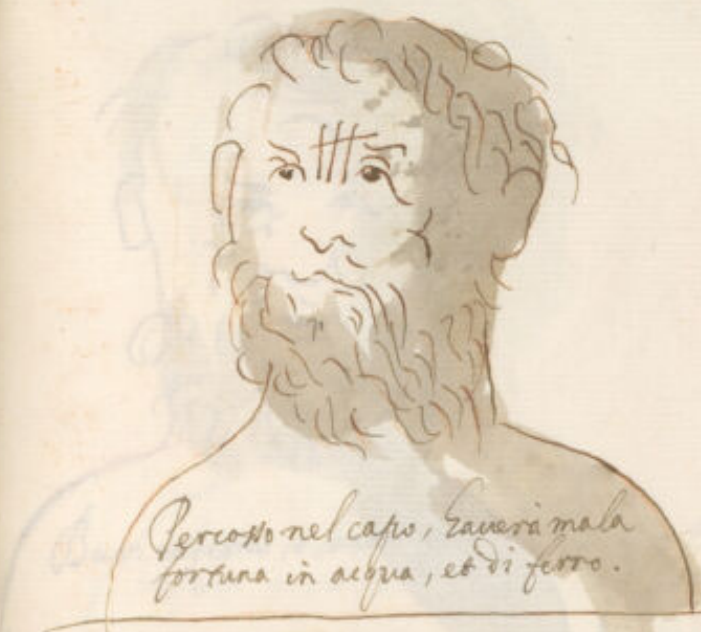 Percosso nel capo, haverà mala
fortuna in acqua, et di ferro.